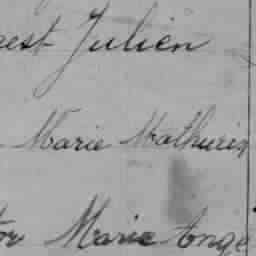 est Julien
Marie Mathurin
or Marie Ange